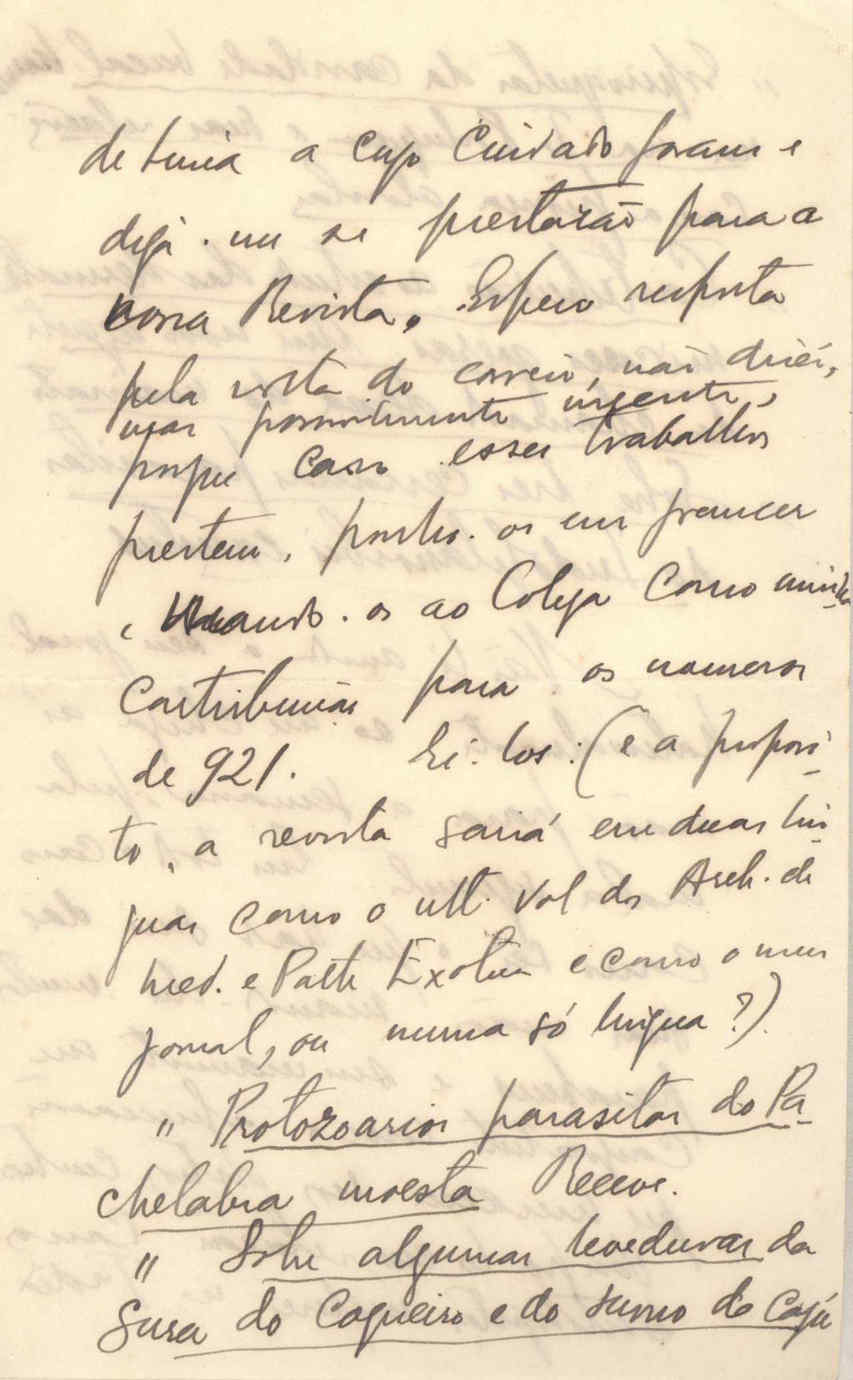 a cujo cuidado foram e
diga-me se prestarão para a
nossa Revista. Espero resposta
pela volta do correio, não direi,
mas possivelmente urgente,
porque caso esses trabalhos
prestem, ponho-os em francez
e mando-os ao Colega como minha
contribuição para os numeros
de 921. Ei-los: (e a proposi-
to, a revista sairá em duas lin-
guas como o ult. vol dos Arch. de
med. e Path Exotica e como o meu
jornal, ou numa só lingua?).
" Protozoarios parasitas do Pa-
chelabra moesta Reeve.
" Sobre algumas leveduras da
Sura do Coqueiro e do sumo do Cajú